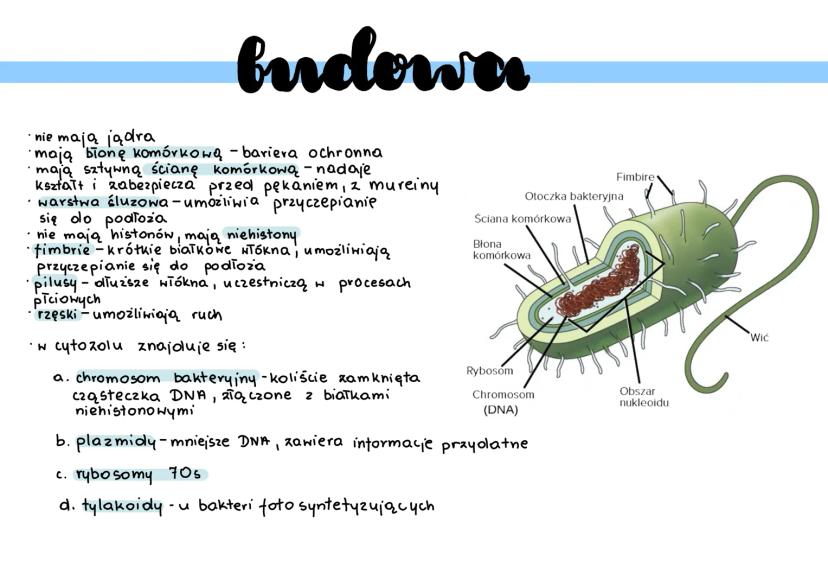 budowa
· nie mają jądra
· mają błonę komórkową – bariera ochronna
· mają sztywną ścianę komórkową – nadaje
kształt i zabezpiecza przed pękaniem, z mureiny
· warstwa śluzowa – umożliwia przyczepianie
się do podłoża
· nie mają histonów, mają niehistony
· fimbrie – krótkie białkowe włókna, umożliwiają
przyczepianie się do podłoża
· pilusy – dłuższe włókna, uczestniczą w procesach
płciowych
· rzęski – umożliwiają ruch
· w cytozolu znajduje się:
a. chromosom bakteryjny – koliście zamknięta
cząsteczka DNA, złączone z białkami
niehistonowymi
b. plazmidy – mniejsze DNA, zawiera informacje przydatne
c. rybosomy 70s
d. tylakoidy – u bakteri foto syntetyzujących
Fimbire
Otoczka bakteryjna
Ściana komórkowa
Błona
komórkowa
Wić
Rybosom
Chromosom
(DNA)
Obszar
nukleoidu